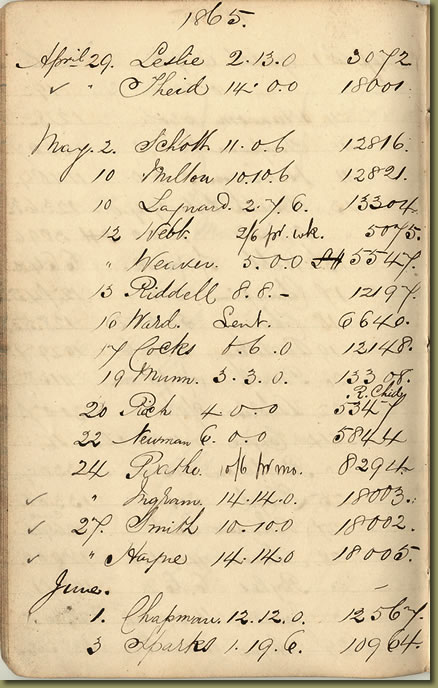 1865.
April 29. Leslie 2.13.0 3072
✓ " Theid 14.0.0 18001
May. 2. Schott 11.0.6 12816.
10 Milton 10.10.6 12821.
10 Laynard. 2.7.6. 13304.
12 Webb. 2/6 pr. wk. 5075.
" Weaver. 5.0.0 5547.
13 Riddell 8.8.- 12197.
16 Ward. Lent. 6640.
17 Cocks 6.6.0 12148.
19 Munn. 3.3.0. 13308.
20 Rich 4.0.0 5347
22 Newman 6.0.0 5844
24 10/6 pr mo. 8294
✓ " Ingram. 14.14.0. 18003.
✓ 27. Smith 10.10.0 18002.
✓ " Hayne 14.14.0 18005.
June.
1. Chapman. 12.12.0. 12567.
3 Sparks 1.19.6. 10964.